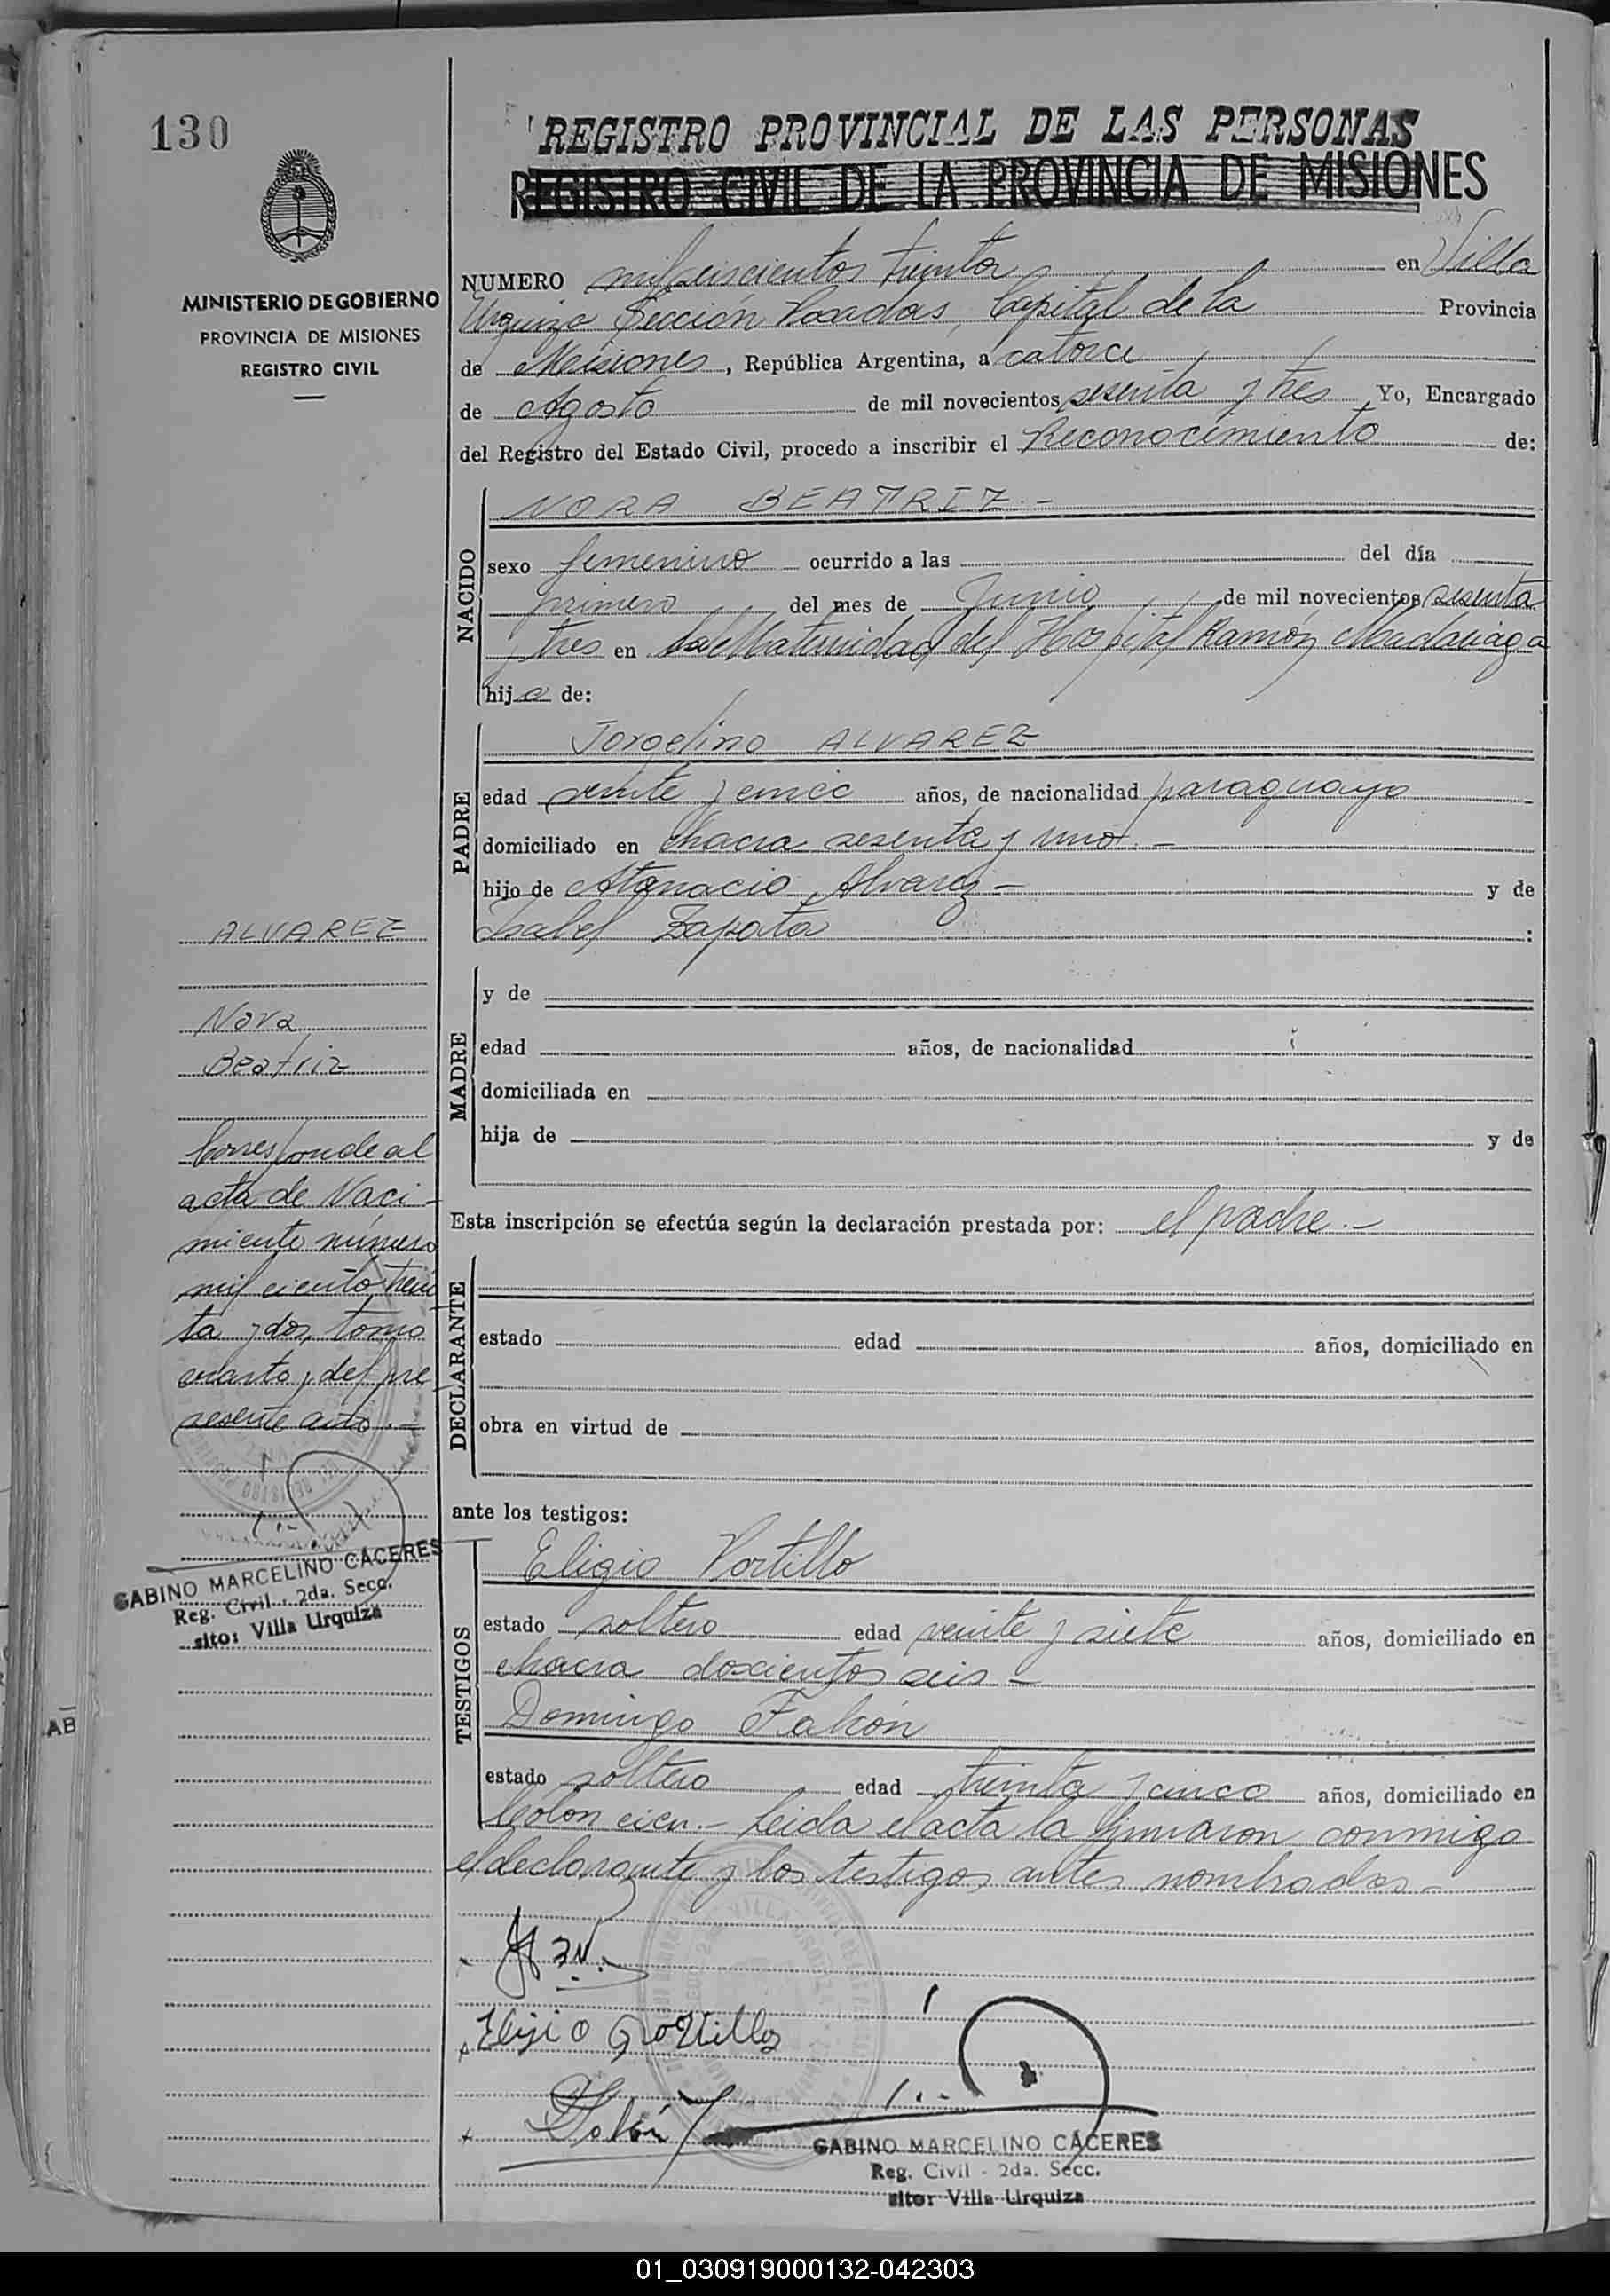 130
REGISTRO PROVINCIAL DE LAS PERSONAS
REGISTRO CIVIL DE LA PROVINCIA DE MISIONES
MINISTERIO DE GOBIERNO
PROVINCIA DE MISIONES
REGISTRO CIVIL
NUMERO mil seiscientos treinta en Villa
Urquiza Sección Posadas, Capital de la Provincia
de Misiones, República Argentina, a catorce
de Agosto de mil novecientos sesenta y tres Yo, Encargado
del Registro del Estado Civil, procedo a inscribir el Reconocimiento de:
NACIDO
NORA BEATRIZ.-
sexo femenino ocurrido a las del día
primero del mes de Junio de mil novecientos sesenta
y tres en la Maternidad del Hospital Ramón Madariaga
hija de:
PADRE
Jorgelino ALVAREZ
edad veinte y cinco años, de nacionalidad paraguayo
domiciliado en chacra sesenta y uno.-
hijo de Atanacio Alvarez - y de
Isabel Zapata :
MADRE
y de
edad años, de nacionalidad
domiciliada en
hija de y de
Esta inscripción se efectúa según la declaración prestada por: el padre.-
DECLARANTE
estado edad años, domiciliado en
obra en virtud de
ante los testigos:
TESTIGOS
Eligio Portillo
estado soltero edad veinte y siete años, domiciliado en
chacra doscientos seis -
Domingo Falcón
estado soltero edad treinta y cinco años, domiciliado en
Colon .- Leida el acta la firmaron conmigo
el declarante y los testigos antes nombrados.-
Elijio Portillo
Falcón
GABINO MARCELINO CACERES
Reg. Civil - 2da. Secc.
sito: Villa Urquiza
ALVAREZ
Nora
Beatriz
Corresponde al
acta de Naci-
miento número
mil ciento trein
ta y dos, tomo
cuarto, del pre
sesente año.-
GABINO MARCELINO CACERES
Reg. Civil - 2da. Secc.
sito: Villa Urquiza
AB
01_030919000132-042303